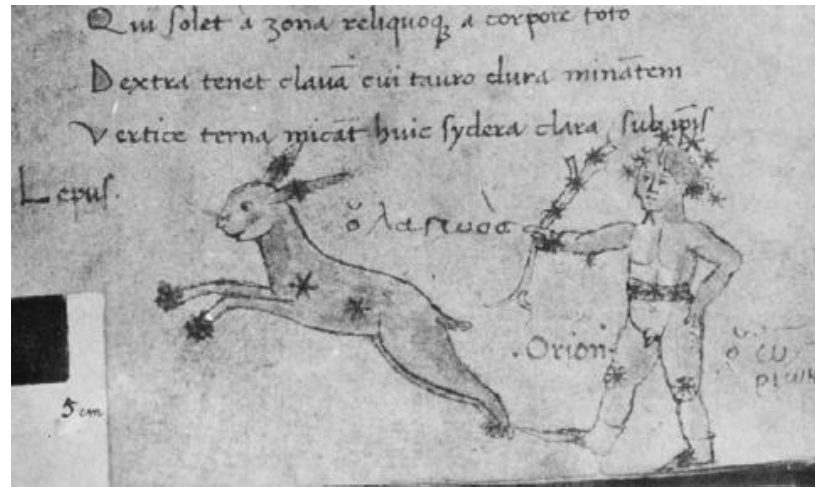 Qui solet à zona reliquoq; a corpore toto
Dextra tenet clauā cui tauro dura minātem
Vertice terna micāt huic sydera clara, sub ip̄is
Lepus.
ὁ λαγωὸς
·Orion·
5 cm